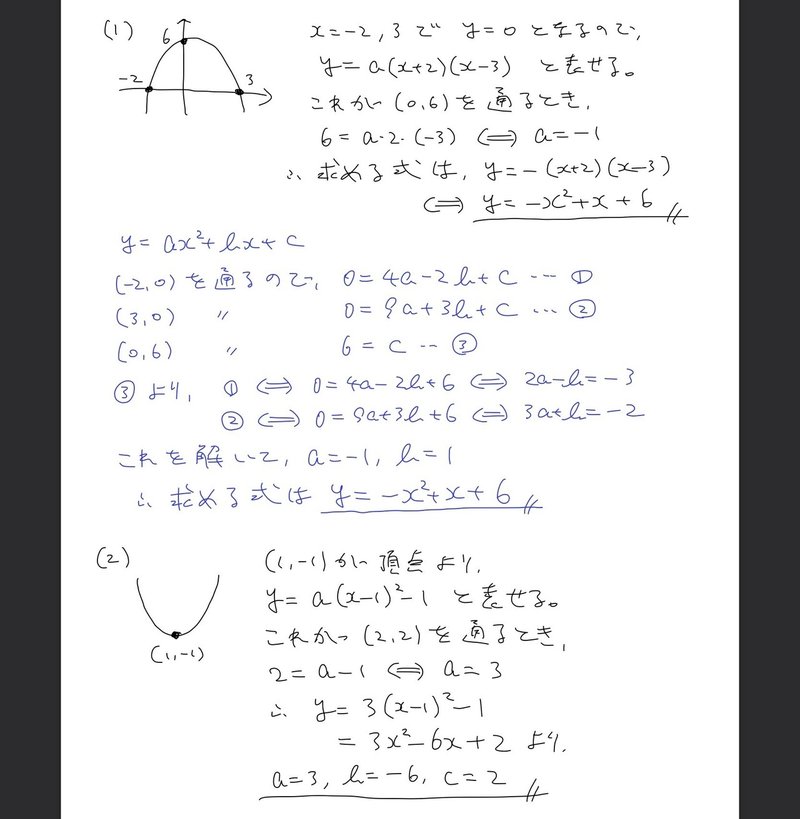 (1)
6
-2
3
x=-2, 3で y=0 となるので,
y=a(x+2)(x-3) と表せる。
これが (0,6) を通るとき,
6=a·2·(-3) ⇔ a=-1
∴ 求める式は, y=-(x+2)(x-3)
⇔ y=-x²+x+6
y=ax²+bx+c
(-2,0) を通るので, 0=4a-2b+c … ①
(3,0) 〃 0=9a+3b+c … ②
(0,6) 〃 6=c … ③
③ より, ① ⇔ 0=4a-2b+6 ⇔ 2a-b=-3
② ⇔ 0=9a+3b+6 ⇔ 3a+b=-2
これを解いて, a=-1, b=1
∴ 求める式は y=-x²+x+6
(2)
(1,-1)
(1,-1) が頂点より,
y=a(x-1)²-1 と表せる。
これが (2,2) を通るとき,
2=a-1 ⇔ a=3
∴ y=3(x-1)²-1
=3x²-6x+2 より,
a=3, b=-6, c=2